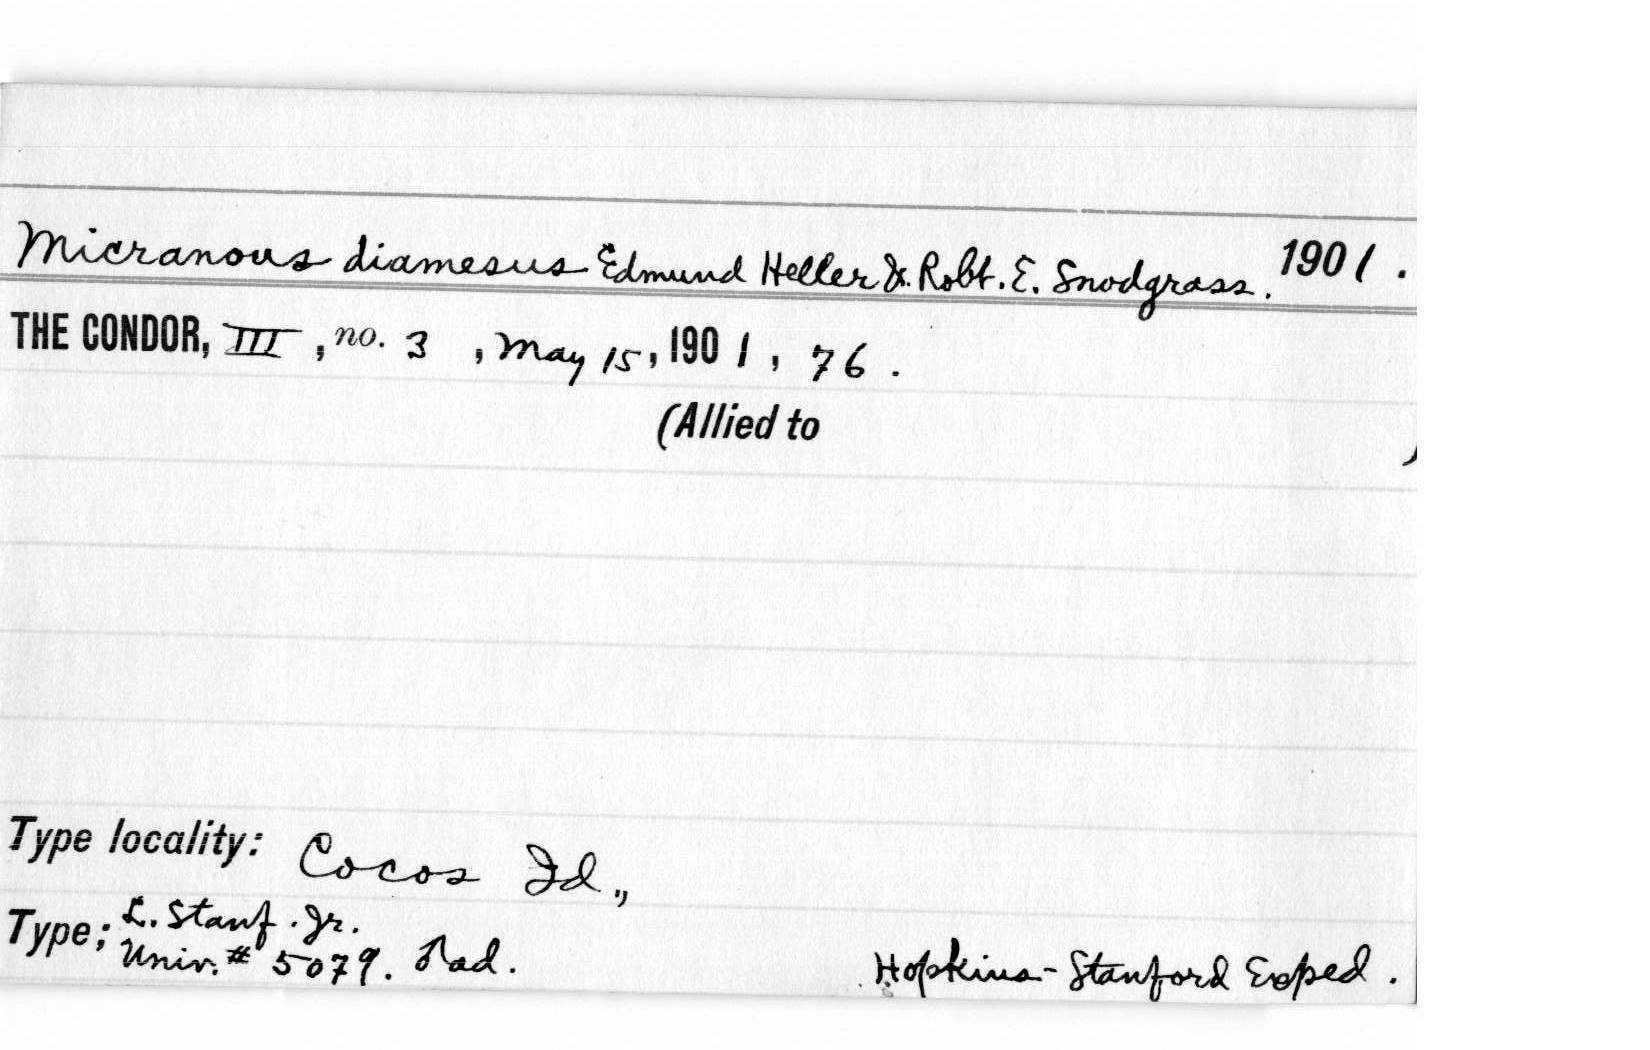 Micranous diamesus Edmund Heller & Robt. E. Snodgrass. 1901.
THE CONDOR, III, no. 3, May 15, 1901, 76.
(Allied to )
Type locality: Cocos Id.,
Type; L. Stanf. Jr.
Univ. # 5079. ♂ad. Hopkins-Stanford Exped.